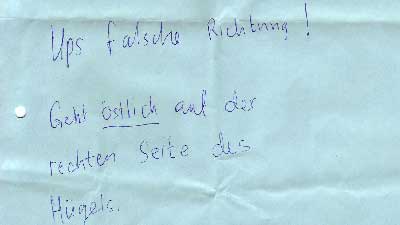 Ups falsche Richtung!
Geht östlich auf der
rechten Seite des
Hügels.